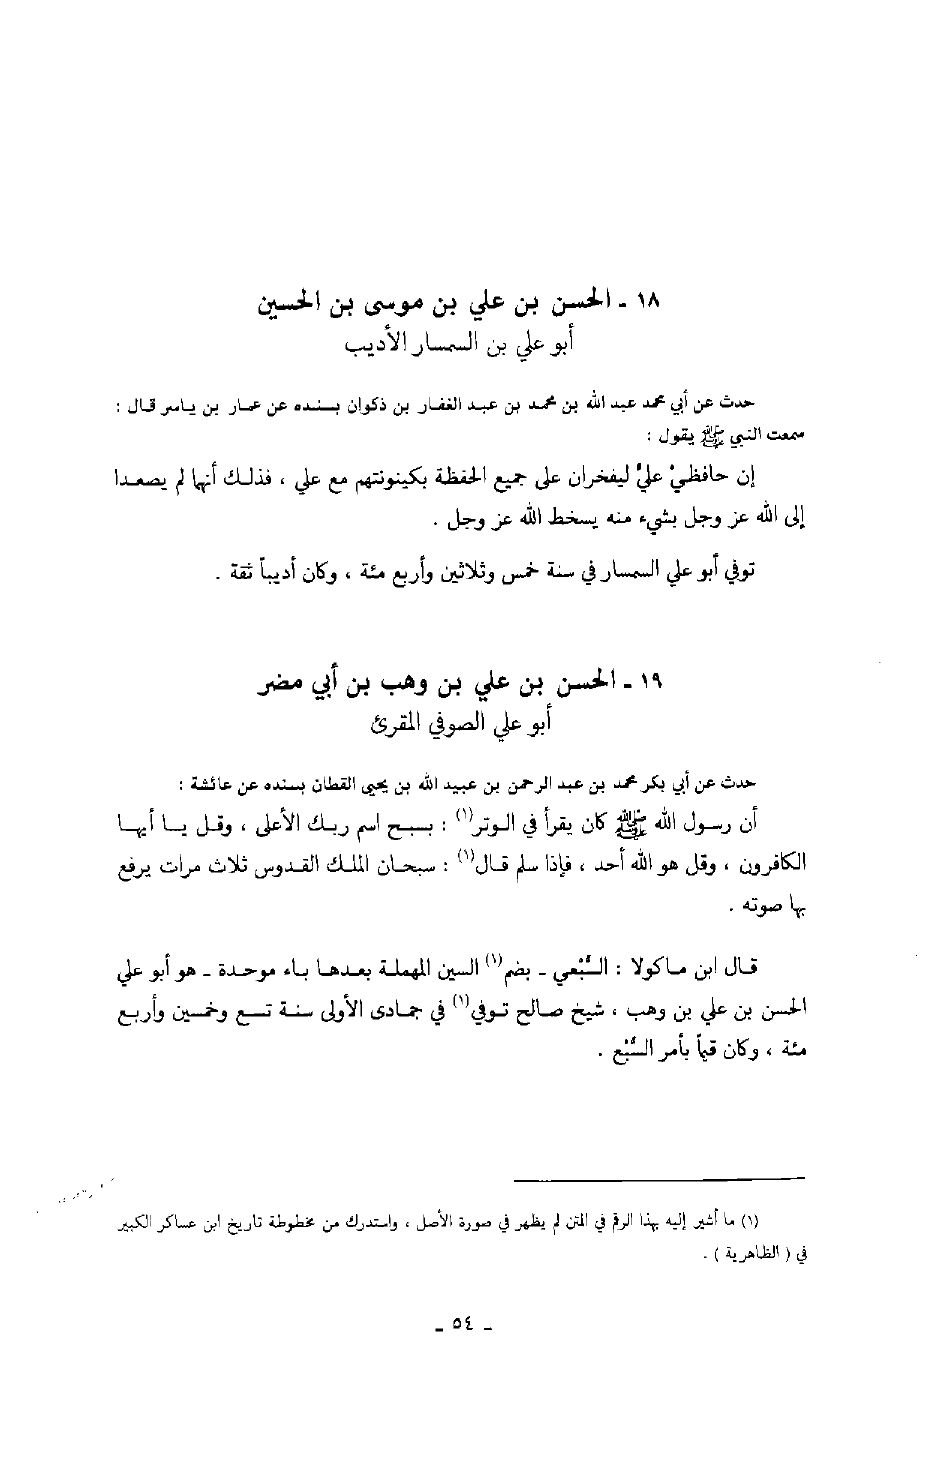 ١٨ - الحسن بن علي بن موسى بن الحسين
أبو علي بن السمسار الأديب
حدث عن أبي محمد عبد الله بن محمد بن عبد الغفار بن ذكوان بسنده عن عمار بن ياسر قال :
سمعت النبي ﷺ يقول :
إن حافظيْ عليٍّ ليفخران على جميع الحفظة بكينونتهم مع علي ، فذلك أنها لم يصعدا
إلى الله عز وجل بشيء منه يسخط الله عز وجل .
توفي أبو علي السمسار في سنة خمس وثلاثين وأربع مئة ، وكان أديباً ثقة .
١٩ - الحسن بن علي بن وهب بن أبي مضر
أبو علي الصوفي المقرئ
حدث عن أبي بكر محمد بن عبد الرحمن بن عبيد الله بن يحيى القطان بسنده عن عائشة :
أن رسول الله ﷺ كان يقرأ في الوتر(١) : بسبح اسم ربك الأعلى ، وقل يا أيها
الكافرون ، وقل هو الله أحد ، فإذا سلم قال(١) : سبحان الملك القدوس ثلاث مرات يرفع
بها صوته .
قال ابن ماكولا : السُّبْعي - بضم(١) السين المهملة بعدها باء موحدة - هو أبو علي
الحسن بن علي بن وهب ، شيخ صالح توفي(١) في جمادى الأولى سنة تسع وخمسين وأربع
مئة ، وكان قيماً بأمر السُّبْع .
(١) ما أشير إليه بهذا الرقم في المتن لم يظهر في صورة الأصل ، واستدرك من مخطوطة تاريخ ابن عساكر الكبير
في ( الظاهرية ) .
- ٥٤ -